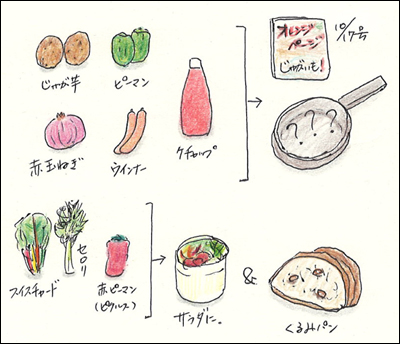 じゃが芋
ピーマン
赤玉ねぎ
ウインナー
ケチャップ
オレンジ
ページ
じゃがいも!
10/17号
???
スイスチャード
セロリ
赤ピーマン
(ピクルス)
サラダに。
&
くるみパン